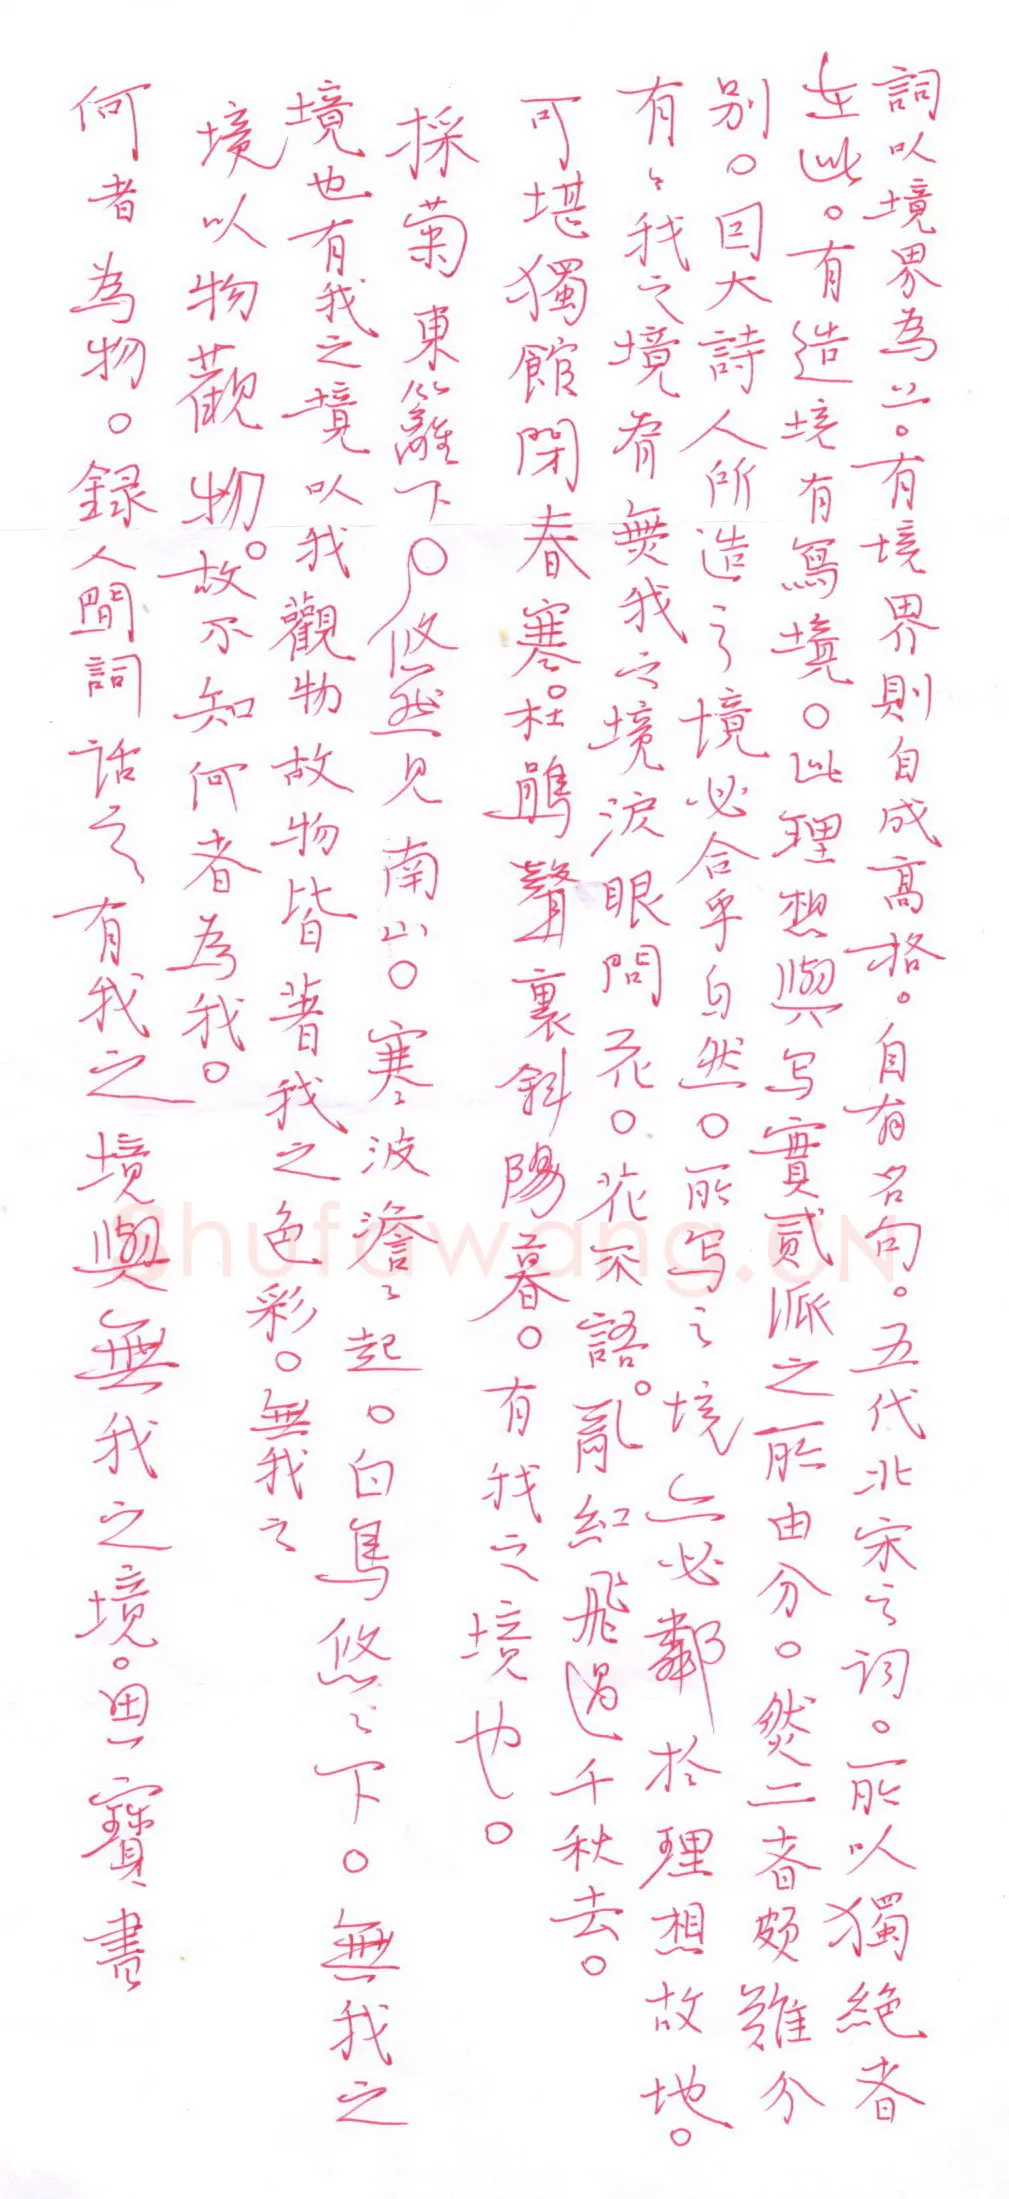 詞以境界為上。有境界則自成高格。自有名句。五代北宋之词。所以獨絕者
在此。有造境有寫境。此理想與写實貳派之所由分。然二者頗難分
别。因大詩人所造之境必合乎自然。所写之境亦必鄰於理想故地。
有々我之境有無我之境淚眼問花。花不語。亂紅飛過千秋去。
可堪獨館閉春寒。杜鵑聲裏斜陽暮。有我之境也。
採菊東籬下。悠然見南山。寒波澹々起。白鳥悠々下。無我之
境也有我之境以我觀物故物皆著我之色彩。無我之
境以物觀物。故不知何者為我。
何者為物。録人間詞話之有我之境與無我之境。思寶書
Shufawang.CN